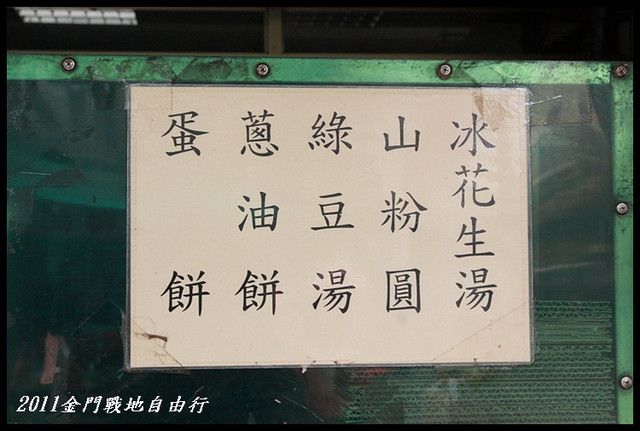 冰花生湯
山粉圓
綠豆湯
蔥油餅
蛋餅
2011金門戰地自由行